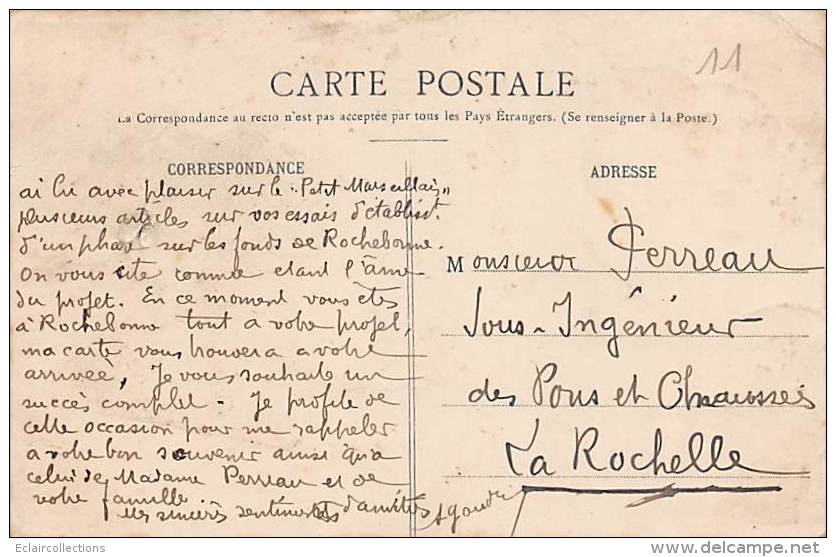 11
CARTE POSTALE
La Correspondance au recto n'est pas acceptée par tous les Pays Étrangers. (Se renseigner à la Poste.)
CORRESPONDANCE
ai lu avec plaisir sur le "Petit Marseillais"
plusieurs articles sur vos essais d'établist.
d'un phare sur les fonds de Rochebonne.
On vous cite comme etant l'âme
du projet. En ce moment vous êtes
à Rochebonne tout a votre projet,
ma carte vous trouvera a votre
arrivée, Je vous souhaite un
succès complet - Je profite de
cette occasion pour me rappeler
a votre bon souvenir ainsi qu'a
celui de Madame Perreau et de
votre famille.
Mes sincères sentiments d'amitiés
ADRESSE
Monsieur Perreau
Sous-Ingénieur
des Pons et Chaussées
La Rochelle
Eclaircollections
www.delcampe.net